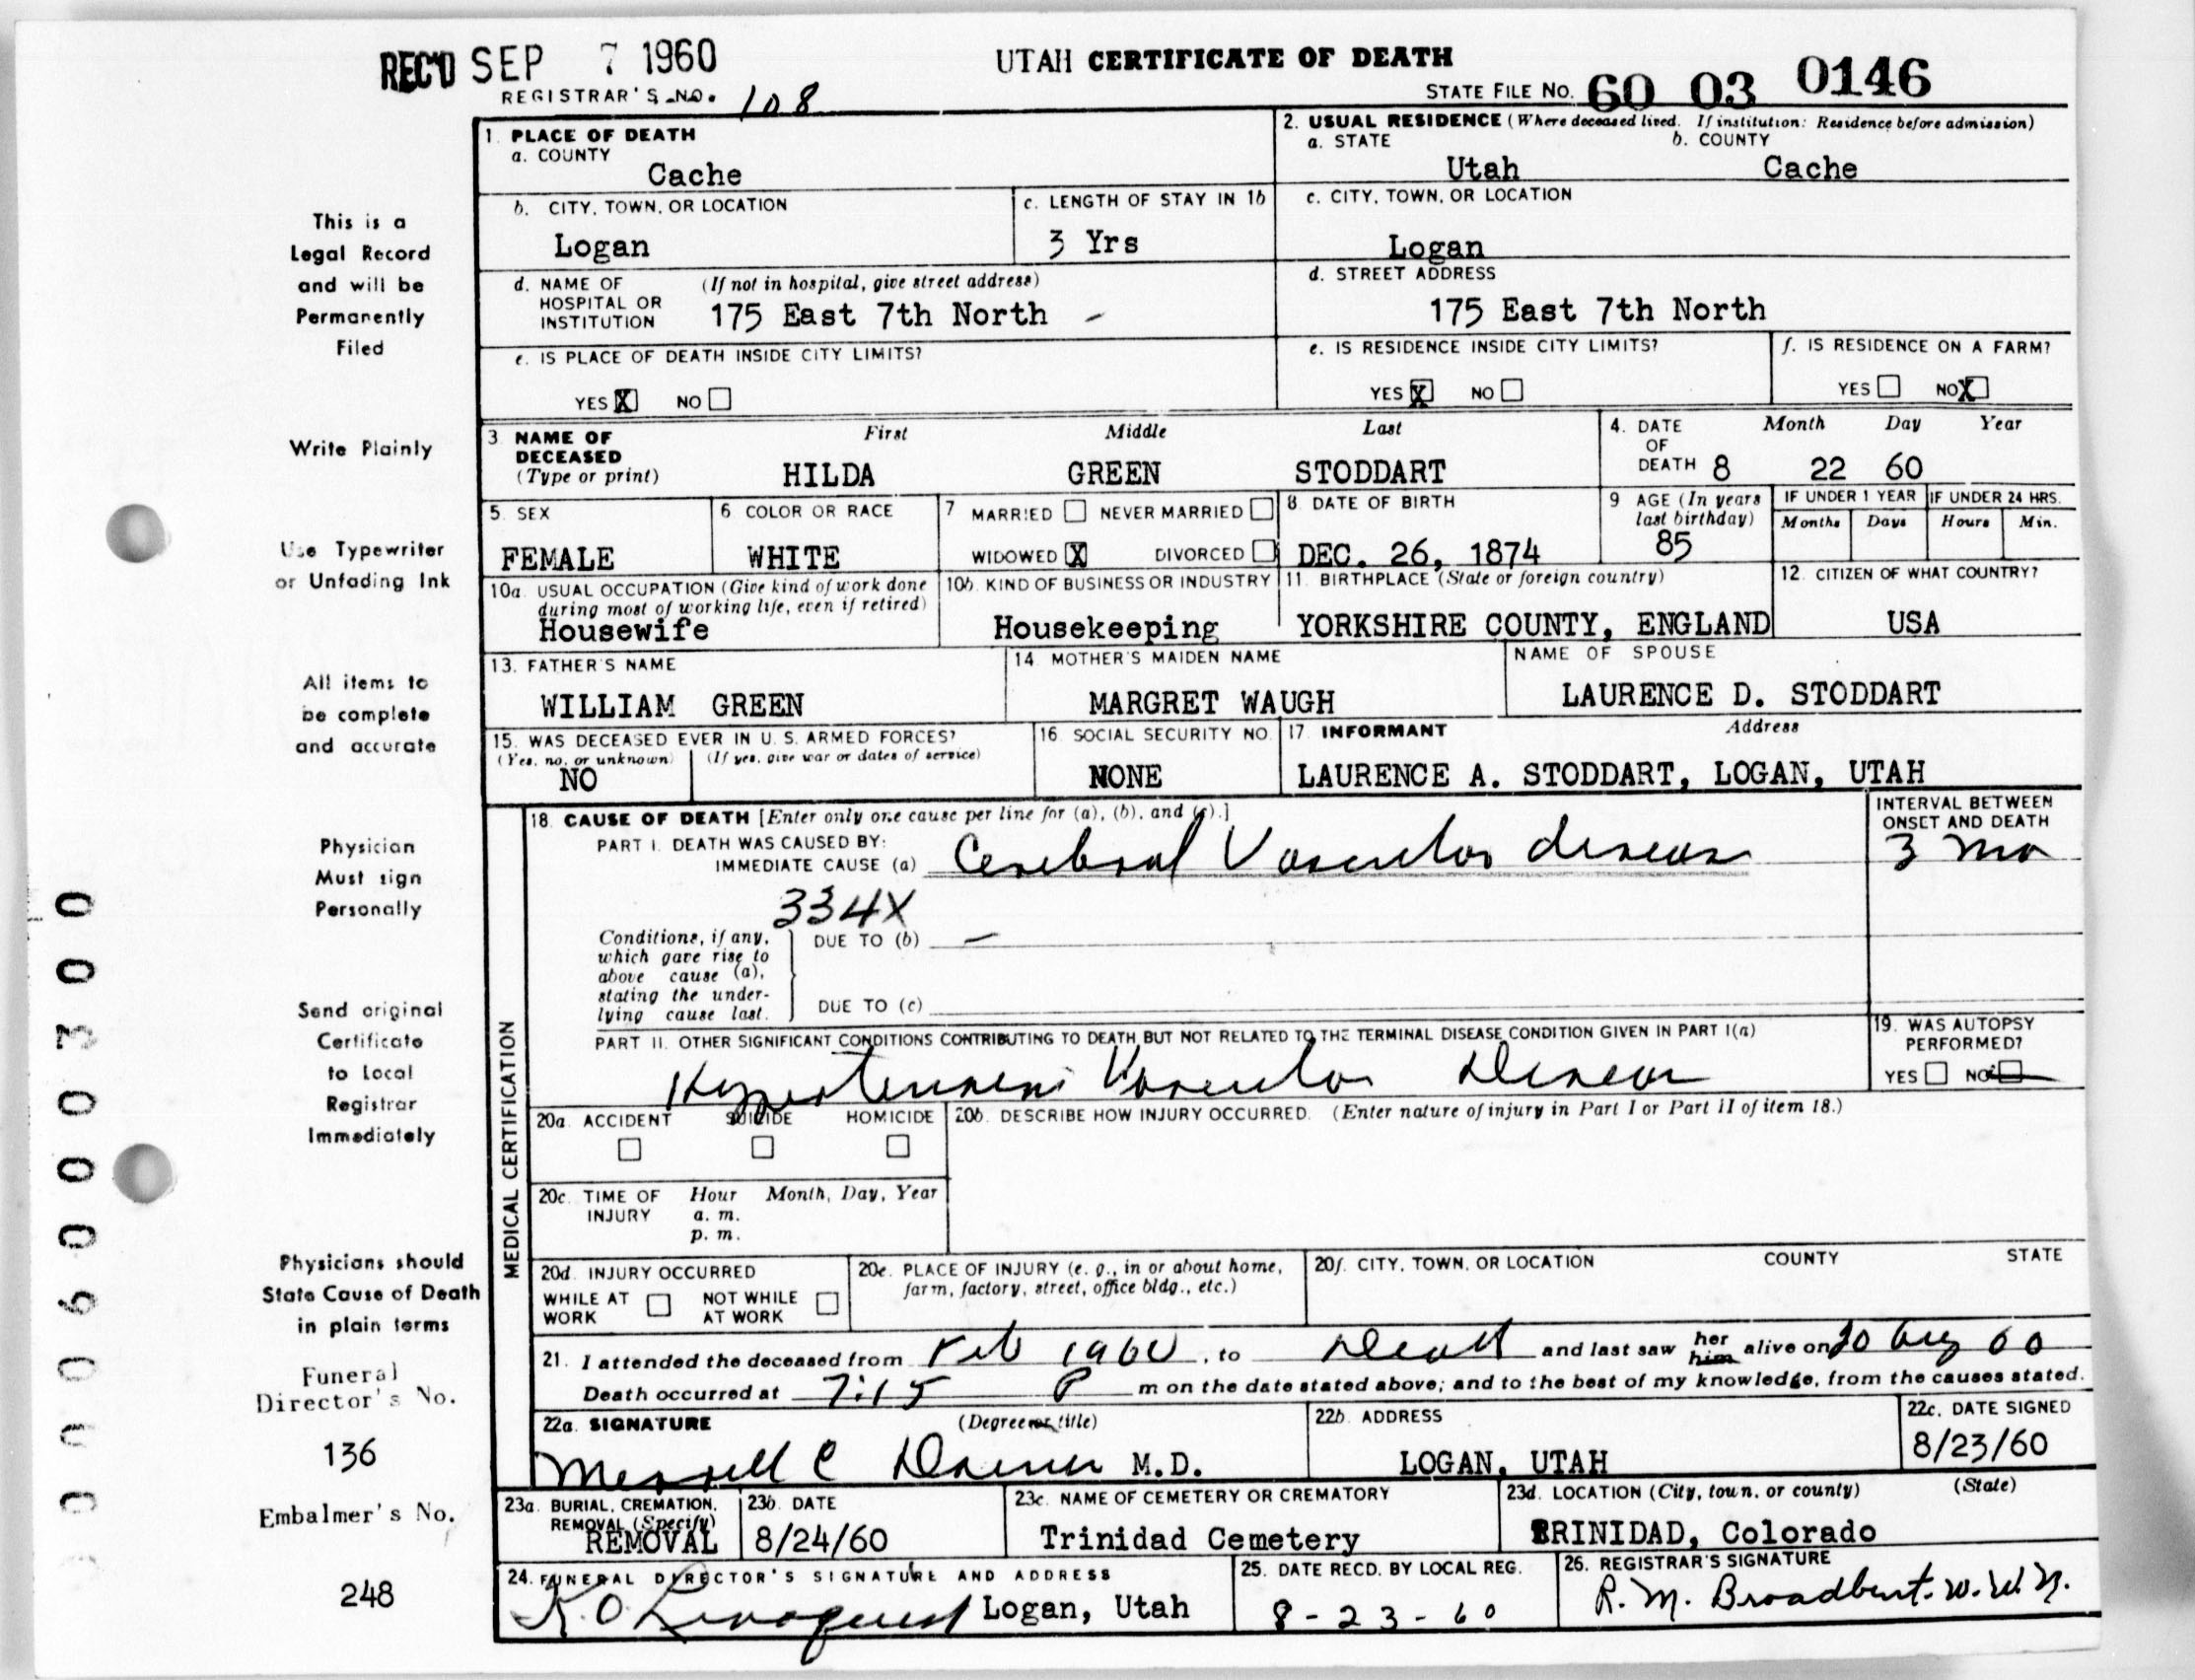 REC'D SEP 7 1960
UTAH CERTIFICATE OF DEATH
REGISTRAR'S NO. 108
STATE FILE NO. 60 03 0146
1. PLACE OF DEATH
a. COUNTY
Cache
2. USUAL RESIDENCE (Where deceased lived. If institution: Residence before admission)
a. STATE b. COUNTY
Utah Cache
b. CITY, TOWN, OR LOCATION
Logan
c. LENGTH OF STAY IN 1b
3 Yrs
c. CITY, TOWN, OR LOCATION
Logan
d. NAME OF HOSPITAL OR INSTITUTION (If not in hospital, give street address)
175 East 7th North -
d. STREET ADDRESS
175 East 7th North
e. IS PLACE OF DEATH INSIDE CITY LIMITS?
YES X NO
e. IS RESIDENCE INSIDE CITY LIMITS?
YES X NO
f. IS RESIDENCE ON A FARM?
YES NO X
3. NAME OF DECEASED (Type or print)
First Middle Last
HILDA GREEN STODDART
4. DATE OF DEATH
Month Day Year
8 22 60
5. SEX
FEMALE
6 COLOR OR RACE
WHITE
7 MARRIED NEVER MARRIED
WIDOWED X DIVORCED
8 DATE OF BIRTH
DEC. 26, 1874
9 AGE (In years last birthday)
85
IF UNDER 1 YEAR
Months Days
IF UNDER 24 HRS.
Hours Min.
10a. USUAL OCCUPATION (Give kind of work done during most of working life, even if retired)
Housewife
10b. KIND OF BUSINESS OR INDUSTRY
Housekeeping
11. BIRTHPLACE (State or foreign country)
YORKSHIRE COUNTY, ENGLAND
12. CITIZEN OF WHAT COUNTRY?
USA
13. FATHER'S NAME
WILLIAM GREEN
14. MOTHER'S MAIDEN NAME
MARGRET WAUGH
NAME OF SPOUSE
LAURENCE D. STODDART
15. WAS DECEASED EVER IN U. S. ARMED FORCES?
(Yes, no, or unknown) (If yes, give war or dates of service)
NO
16. SOCIAL SECURITY NO.
NONE
17. INFORMANT Address
LAURENCE A. STODDART, LOGAN, UTAH
MEDICAL CERTIFICATION
18. CAUSE OF DEATH [Enter only one cause per line for (a), (b), and (c).]
PART I. DEATH WAS CAUSED BY:
IMMEDIATE CAUSE (a) Cerebral Vascular disease
INTERVAL BETWEEN ONSET AND DEATH
3 mo
334X
Conditions, if any, which gave rise to above cause (a), stating the underlying cause last.
DUE TO (b) —
DUE TO (c)
PART II. OTHER SIGNIFICANT CONDITIONS CONTRIBUTING TO DEATH BUT NOT RELATED TO THE TERMINAL DISEASE CONDITION GIVEN IN PART I(a)
Hypertensive Vascular Disease
19. WAS AUTOPSY PERFORMED?
YES NO
20a. ACCIDENT SUICIDE HOMICIDE
20b. DESCRIBE HOW INJURY OCCURRED. (Enter nature of injury in Part I or Part II of item 18.)
20c. TIME OF INJURY Hour Month, Day, Year
a. m.
p. m.
20d. INJURY OCCURRED
WHILE AT WORK NOT WHILE AT WORK
20e. PLACE OF INJURY (e. g., in or about home, farm, factory, street, office bldg., etc.)
20f. CITY, TOWN, OR LOCATION COUNTY STATE
21. I attended the deceased from Feb 1960, to Death and last saw her him alive on 20 Aug 60
Death occurred at 7:15 P m on the date stated above; and to the best of my knowledge, from the causes stated.
22a. SIGNATURE (Degree or title)
Merrill C M.D.
22b. ADDRESS
LOGAN, UTAH
22c. DATE SIGNED
8/23/60
23a. BURIAL, CREMATION, REMOVAL (Specify)
REMOVAL
23b. DATE
8/24/60
23c. NAME OF CEMETERY OR CREMATORY
Trinidad Cemetery
23d. LOCATION (City, town, or county) (State)
TRINIDAD, Colorado
24. FUNERAL DIRECTOR'S SIGNATURE AND ADDRESS
Logan, Utah
25. DATE RECD. BY LOCAL REG.
8-23-60
26. REGISTRAR'S SIGNATURE
R. M. Broadbent. W.W.N.
This is a
Legal Record
and will be
Permanently
Filed
Write Plainly
Use Typewriter
or Unfading Ink
All items to
be complete
and accurate
Physician
Must sign
Personally
Send original
Certificate
to Local
Registrar
Immediately
Physicians should
State Cause of Death
in plain terms
Funeral
Director's No.
136
Embalmer's No.
248